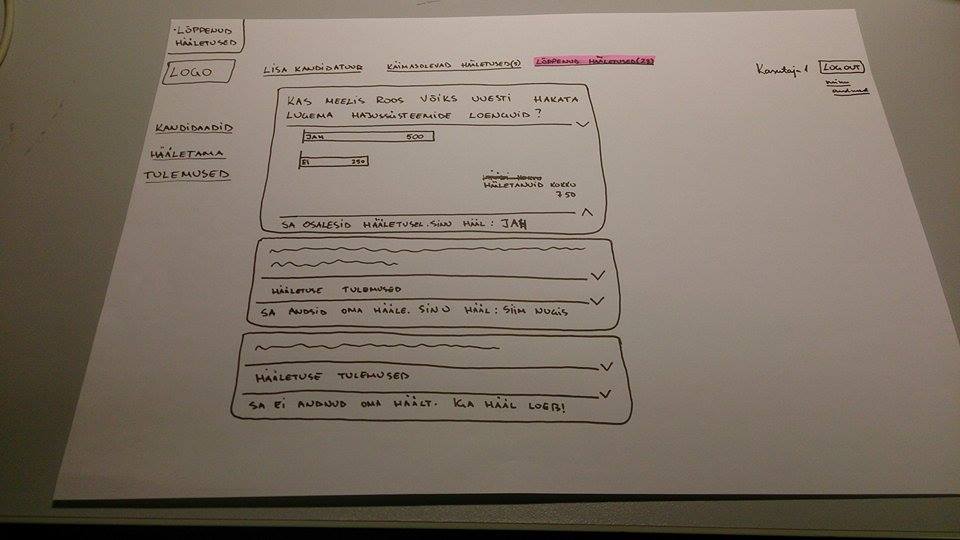 ·LÕPPENUD
HÄÄLETUSED
LOGO
LISA KANDIDATUUR
KÄIMASOLEVAD HÄÄLETUSED(5)
LÕPPENUD HÄÄLETUSED(23)
Kasutaja 1
LOGOUT
minu
andmed
KANDIDAADID
HÄÄLETAMA
TULEMUSED
KAS MEELIS ROOS VÕIKS UUESTI HAKATA
LUGEMA HAJUSSÜSTEEMIDE LOENGUID?
JAH 500
EI 250
HÄÄLETANUID KOKKU
750
SA OSALESID HÄÄLETUSEL. SINU HÄÄL: JAH
HÄÄLETUSE TULEMUSED
SA ANDSID OMA HÄÄLE. SINU HÄÄL: SIIM NUGIS
HÄÄLETUSE TULEMUSED
SA EI ANDNUD OMA HÄÄLT. IGA HÄÄL LOEB!